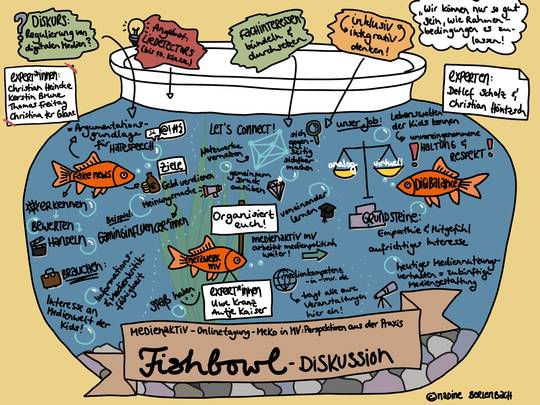 DISKURS:
Regulierung von
digitalen Medien?
Angebot:
LIEDETECTORS
(bis 10. Klasse)
FACHINTERESSEN
bündeln &
durchsetzen
inklusiv
& integrativ
denken!
Wir können nur so gut
sein, wie Rahmen-
bedingungen es zu-
lassen!
EXPERT*innen:
Christian Heincke
Kerstin Brune
Thomas Freitag
Christina ter Glane
EXPERTEN:
Detlef Scholz &
Christian Höntzsch
= Argumentations-
grundlage
für
HATESPEECH
@!#$
Fake news
ZIELE
Geld verdienen
Meinungsmache
#ERKENNEN
BEWERTEN
HANDELN
Beispiel:
GAMINGINFLUENCER*innen
BRAUCHEN:
Interesse an
Medienwelt der
Kids!
Informations-
& Medienkritik-
fähigkeit
Spaß haben
LET'S CONNECT!
Netzwerke
verwalten
gemeinsam
Druck
ausüben
sich
gegen-
seitig
sichtbar
machen
voneinander
lernen
Organisiert
euch!
netzwerk
mv
medienaktiv mv
arbeitet medienpolitisch
weiter!
EXPERT*innen
Uwe Kranz
Antje Kaiser
medienkompetenz
-in-mv.de
tragt alle eure
Veranstaltungen
hier ein!
unser Job:
analog
virtuell
Lebenswelten
der Kids kennen
unvoreingenommene
HALTUNG &
RESPEKT!
DigiBalance
GRUNDSTEINE:
Empathie & Mitgefühl
aufrichtiges Interesse
heutiges Mediennutzungs-
verhalten = zukünftige
Mediengestaltung
MEDIENAKTIV - Onlinetagung - MeKo in MV: Perspektiven aus der Praxis
Fishbowl - DISKUSSION
©nadine BERLENBACH